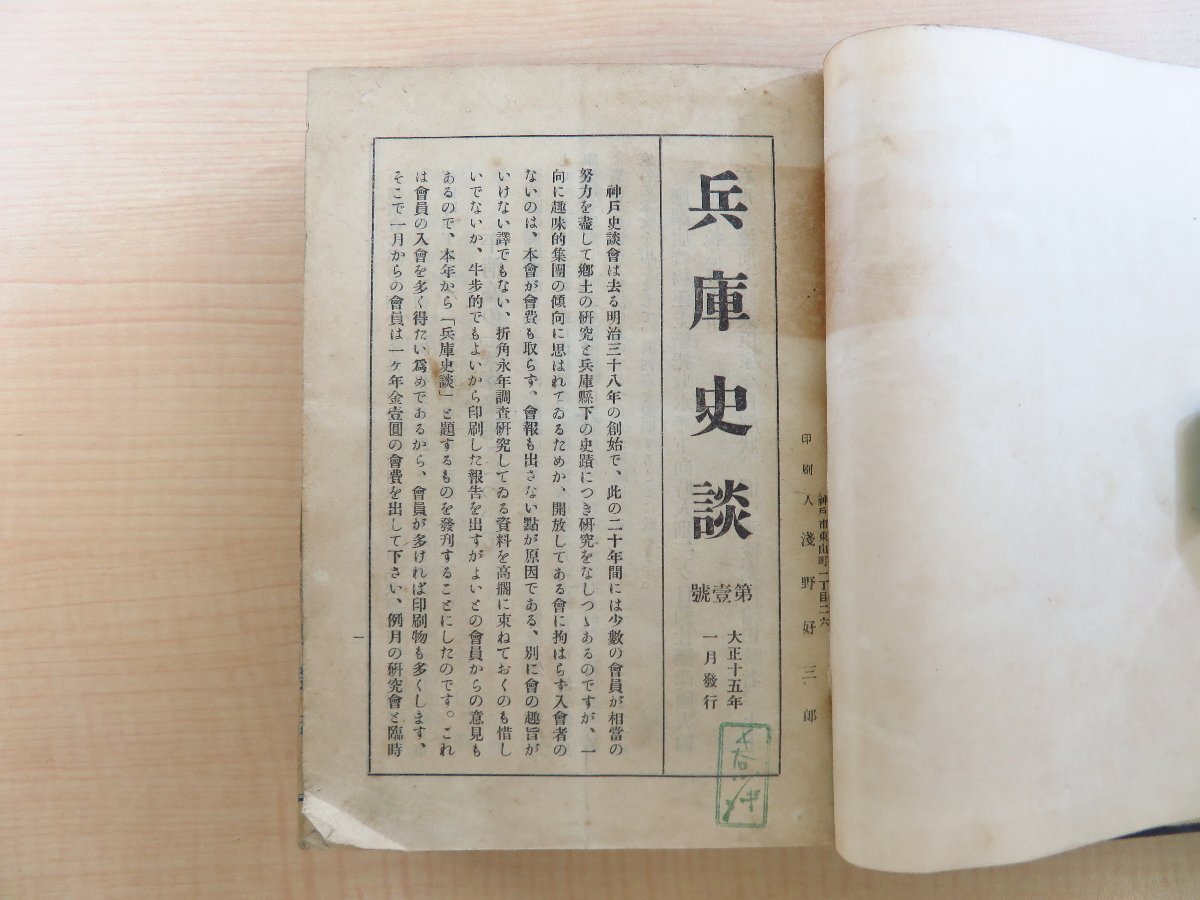 神戸市東山町一丁目二六
印刷人 淺野好三郎
兵庫史談
第壹號
大正十五年
一月發行
神戸史談會は去る明治三十八年の創始で、此の二十年間には少數の會員が相當の
努力を盡して郷土の研究と兵庫縣下の史蹟につき研究をなしつゝあるのですが、一
向に趣味的集團の傾向に思はれてゐるためか、開放してある會に拘はらず入會者の
ないのは、本會が會費も取らず、會報も出さない點が原因である、別に會の趣旨が
いけない譯でもない、折角永年調査研究してゐる資料を高擱に束ねておくのも惜し
いでないか、牛步的でもよいから印刷した報告を出すがよいとの會員からの意見も
あるので、本年から「兵庫史談」と題するものを發刊することにしたのです。これ
は會員の入會を多く得たい爲めであるから、會員が多ければ印刷物も多くします、
そこで一月からの會員は一ヶ年金壹圓の會費を出して下さい、例月の研究會と臨時
一